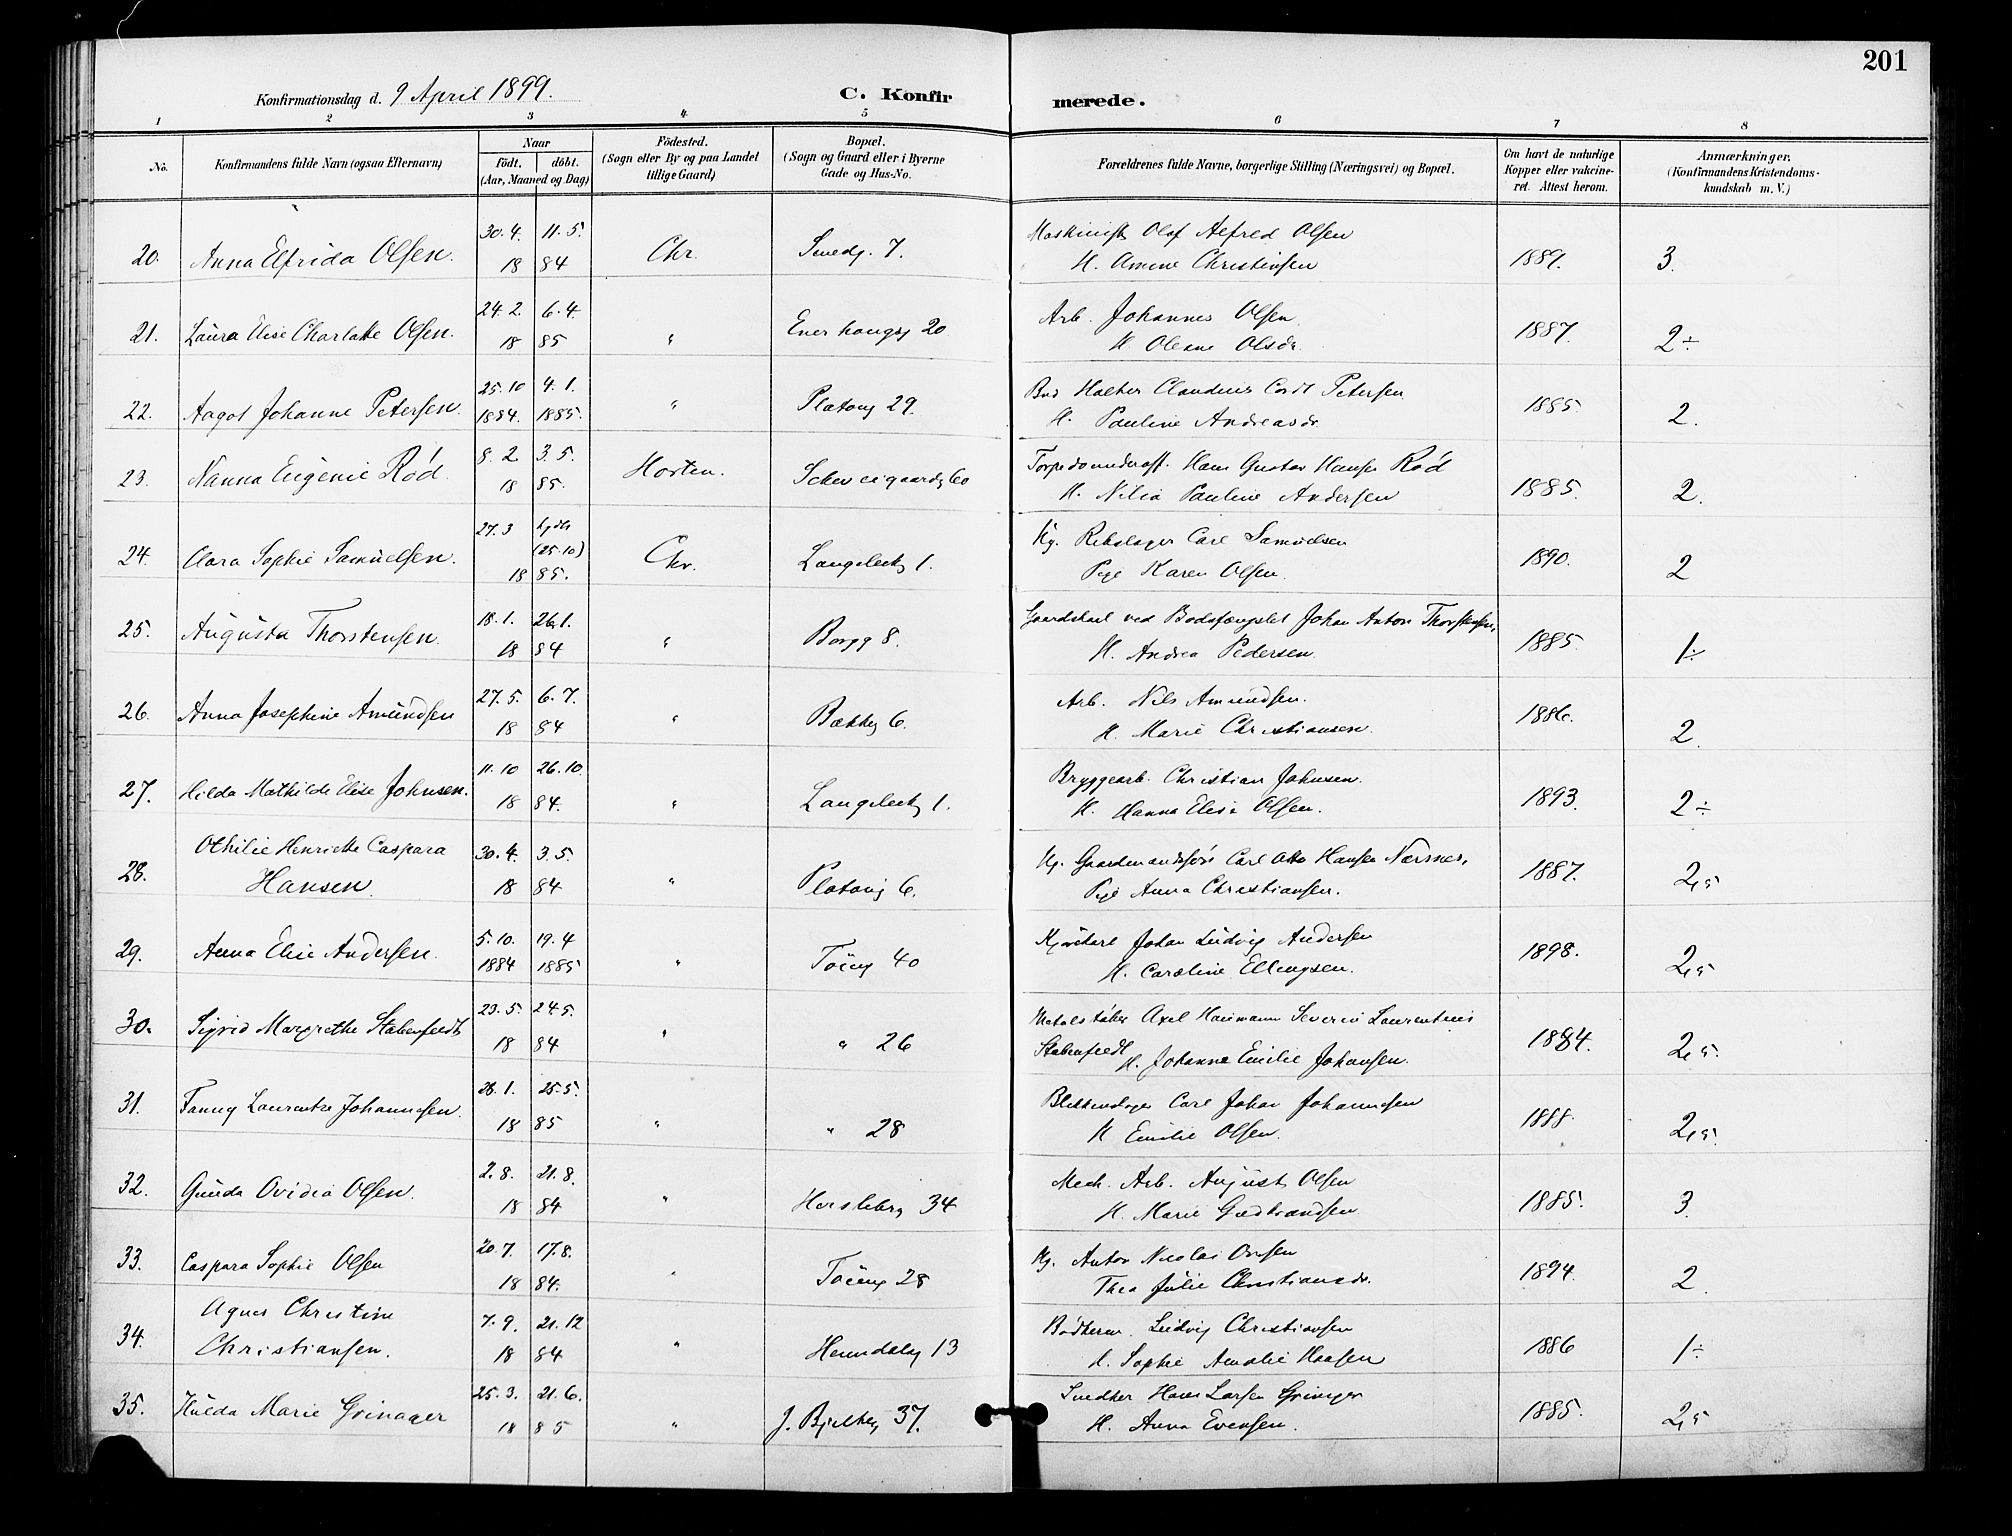 201
Konfirmationsdag d. 9 April 1899.
C. Konfirmerede.
1 2 3 4 5 6 7 8
No.
Konfirmandens fulde Navn (ogsaa Efternavn)
Naar
födt. döbt.
(Aar, Maaned og Dag)
Födested.
(Sogn eller By og paa Landet
tillige Gaard)
Bopæl.
(Sogn og Gaard eller i Byerne
Gade og Hus-No.
Forældrenes fulde Navne, borgerlige Stilling (Næringsvei) og Bopæl.
Om havt de naturlige
Kopper eller vakcine-
ret. Attest herom.
Anmærkninger.
(Konfirmandens Kristendoms-
kundskab m. V.)
20. Anna Elfrida Olsen. 30.4. 11.5. 18 84 Chr. Smedg. 7. Maskinist Olaf Alfred Olsen
H. Amine Christensen 1889. 3.
21. Laura Elise Charlotte Olsen. 24.2. 6.4. 18 85 " Enerhaugg 20 Arb. Johannes Olsen
H. Olene Olsdr. 1887. 2÷
22. Aagot Johanne Petersen. 25.10 1884. 4.1. 1885. " Platoug 29. Bud Halter Claudius Cordt Petersen
H. Pauline Andreasdr. 1885. 2.
23. Nanna Eugenie Röd 8.2 3.5. 18 85. Horten. Schweigaardg 60 Torpedounderoff. Hans Gustav Hansen Röd
H. Nilia Pauline Andersen 1885. 2.
24. Clara Sophie Samuelsen. 27.3 hjdbt (25.10) 18 85. Chr. Langeleekg 1. Ug. Rebslager Carl Samuelsen
Pige Karen Olsen. 1890. 2
25. Augusta Thorstensen. 18.1. 26.1. 18 84 " Borgg 8. Gaardskarl ved Bodsfængslet Johan Anton Thorstensen,
H. Andrea Pedersen. 1885. 1÷
26. Anna Josephine Amundsen 27.5. 6.7. 18 84 " Bækkeg 6. Arb. Nils Amundsen.
H. Marie Christiansen. 1886. 2.
27. Hilda Mathilde Elise Johnsen. 11.10 26.10. 18 84. " Langeleekg 1. Bryggearb. Christian Johnsen.
H. Hanna Elise Olsen. 1893. 2÷
28. Othilie Henriette Caspara
Hansen. 30.4. 3.5. 18 84 " Platoug 6. Ug. Gaardmandssøn Carl Otto Hansen Nærsnes,
Pige Anna Christiansen. 1887. 2,5
29. Anna Elise Andersen. 5.10. 1884 19.4 1885 " Töieng 40 Kjørekarl Johan Ludvig Andersen
H. Caroline Ellingsen. 1898. 2,5
30. Sigrid Margrethe Stabenfeldt 23.5. 24.5. 18 84 " " 26 Metalstøber Axel Hanimann Severin Laurentius
Stabenfeldt H. Johanne Emilie Johansen. 1884. 2,5.
31. Fanny Laurentze Johannesen. 26.1. 25.5. 18 85 " " 28 Blikkenslager Carl Johan Johannesen
H Emilie Olsen. 1888. 2,5.
32. Gunda Ovidia Olsen. 2.8. 21.8. 18 84 " Herslebsg 34 Mech. Arb. August Olsen
H. Marie Gudbrandsen. 1885. 3
33. Caspara Sophie Olsen 20.7. 17.8. 18 84. " Töieng 28 Ug. Anton Nicolai Olsen
Thea Julie Christiansdr. 1894. 2
34. Agnes Christine
Christiansen. 7.9. 21.12 18 84 " Heimdalsg 13 Bødkerm. Ludvig Christiansen
H. Sophie Amalie Hansen 1886 1÷
35. Hulda Marie Grinager 25.3. 21.6. 18 85 " J. Bjelkeg 37. Snedker Hans Larsen Grinager
H. Anna Evensen. 1885. 2,5